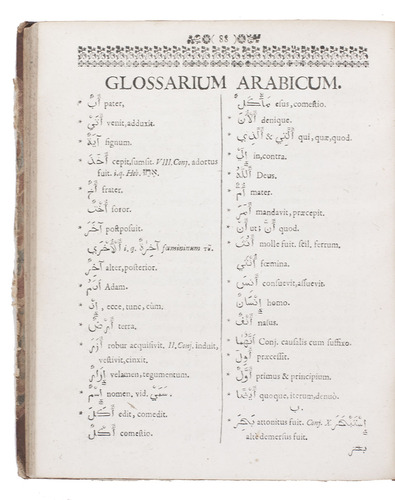 ( 88 )
GLOSSARIUM ARABICUM.
* أَبٌ pater,
* أَتَى venit, adduxit.
* آيَةٌ signum.
* أَخَذَ cepit, sumsit. VIII. Conj. adortus
fuit. i. q. Heb.
* أَخٌ frater.
* أُخْتٌ soror.
* آخَرَ postposuit.
i. q. آخِرَةٌ fœmininum τῦ
آخِرٌ alter, posterior.
* آدَمُ Adam.
* إِذْ, ecce, tunc, cùm.
* أَرْضٌ terra.
* أَزَرَ robur acquisivit. II. Conj. induit,
vestivit, cinxit.
إِزَارٌ velamen, tegumentum.
* إِسْمٌ nomen, vid. سَمَى.
* أَكَلَ edit, comedit.
أَكْلٌ comestio.
مَأْكَلٌ esus, comestio.
* أَلْآنَ denique.
* أَلَّتِي & أَلَّذِي qui, quæ, quod.
* إِلَى in, contra.
* أَللّٰهُ Deus.
* أُمٌّ mater.
* أَمَرَ mandavit, præcepit.
* أَنْ ut; أَنَّ quod.
* أَنُثَ molle fuit. scil. ferrum.
أُنْثَى fœmina.
* أَنِسَ consuevit, assuevit.
* إِنْسَانٌ homo.
* أَنْفٌ nasus.
* أَنَّهَا Conj. causalis cum suffixo.
* أَوَلَ præcessit.
* أَوَّلُ primus & principium.
* أَيْضًا quoque, iterum, denuò.
ب.
* بَحَرَ attonitus fuit. Conj. X. إِسْتَبْحَرَ
altè demersus fuit.
بحر